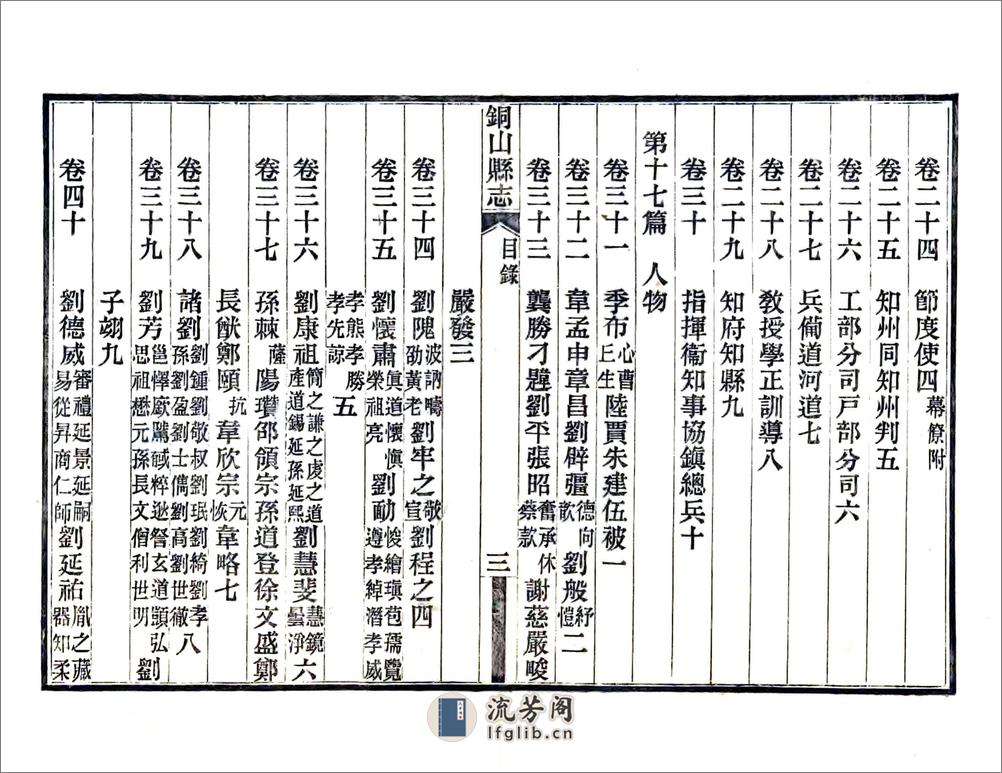 卷二十四 節度使四幕僚附
卷二十五 知州同知州判五
卷二十六 工部分司戶部分司六
卷二十七 兵備道河道七
卷二十八 敎授學正訓導八
卷二十九 知府知縣九
卷三十 指揮衞知事協鎭總兵十
第十七篇 人物
卷三十一 季布心曹丘生陸賈朱建伍被一
卷三十二 韋孟申章昌劉辟彊德向歆劉般紆愷二
卷三十三 龔勝刁韙劉平張昭奮承休蔡款謝慈嚴畯
銅山縣志 目錄 三
嚴發三
卷三十四 劉隗波訥疇劭黃老劉牢之敬宣劉程之四
卷三十五 劉懷肅眞道懷愼榮祖亮劉勔悛繪瑱苞孺覽遵孝綽潛孝威
孝熊孝勝孝先諒五
卷三十六 劉康祖簡之謙之虔之道產道錫延孫延熙劉慧斐慧鏡曇淨六
卷三十七 孫棘薩陽瓚邵領宗孫道登徐文盛鄭
長猷鄭頤抗韋欣宗元恢韋略七
卷三十八 諸劉劉鍾劉敬叔劉珉劉綺劉孝孫劉盈劉士儁劉高劉世徹八
卷三十九 劉芳邕懌廞騭戫悴逖詧玄道顗弘思祖懋元孫長文僧利世明劉
子翊九
卷四十 劉德威審禮延景延嗣易從昇商仁師劉延祐胤之藏器知柔
流芳阁
lfglib.cn